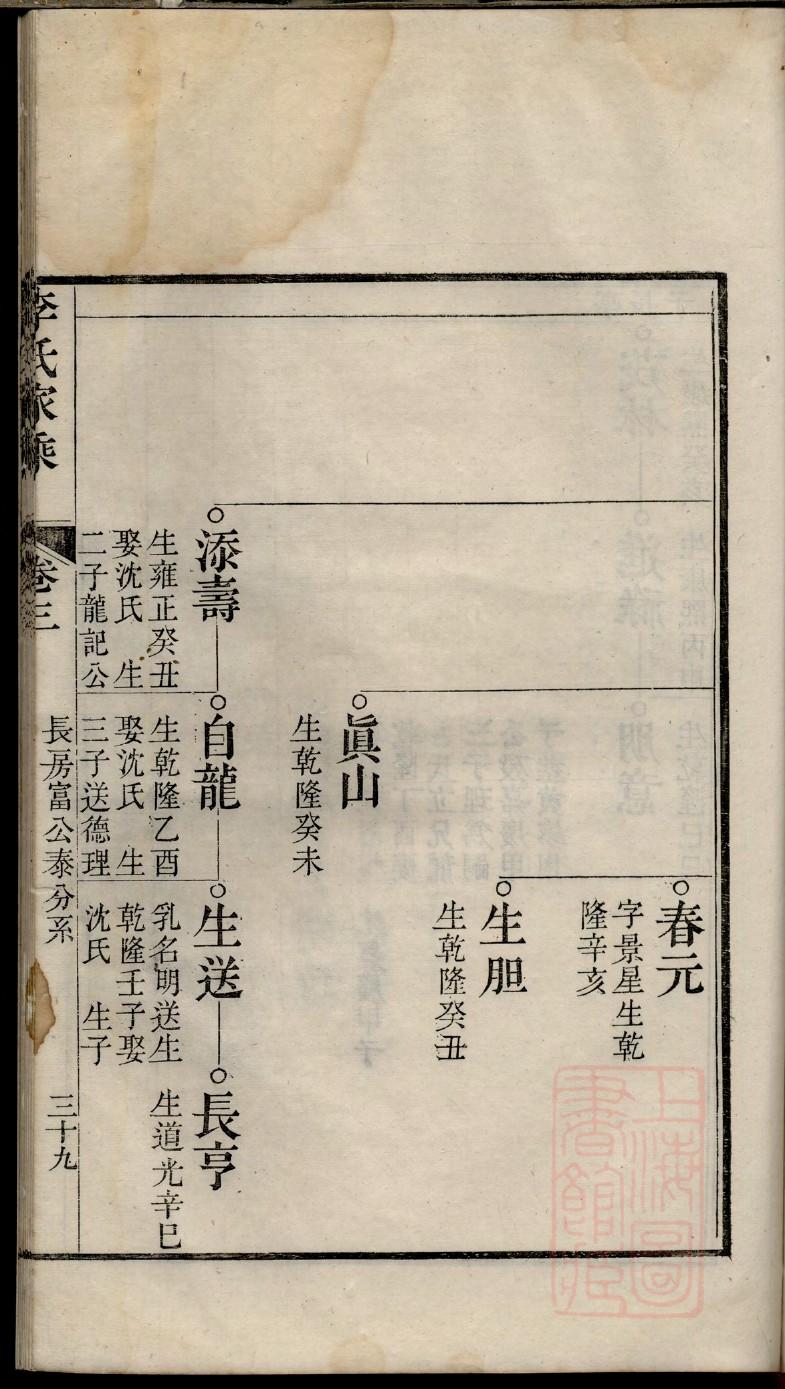 春元
字景星生乾
隆辛亥
生胆
生乾隆癸丑
眞山
生乾隆癸未
添壽
生雍正癸丑
娶沈氏　生
二子龍記公
自龍
生乾隆乙酉
娶沈氏　生
三子送德理
生送
乳名明送生
乾隆壬子娶
沈氏　生子
長亨
生道光辛巳
李氏家乘
卷三
長房富公泰分系
三十九
上海圖
書館藏